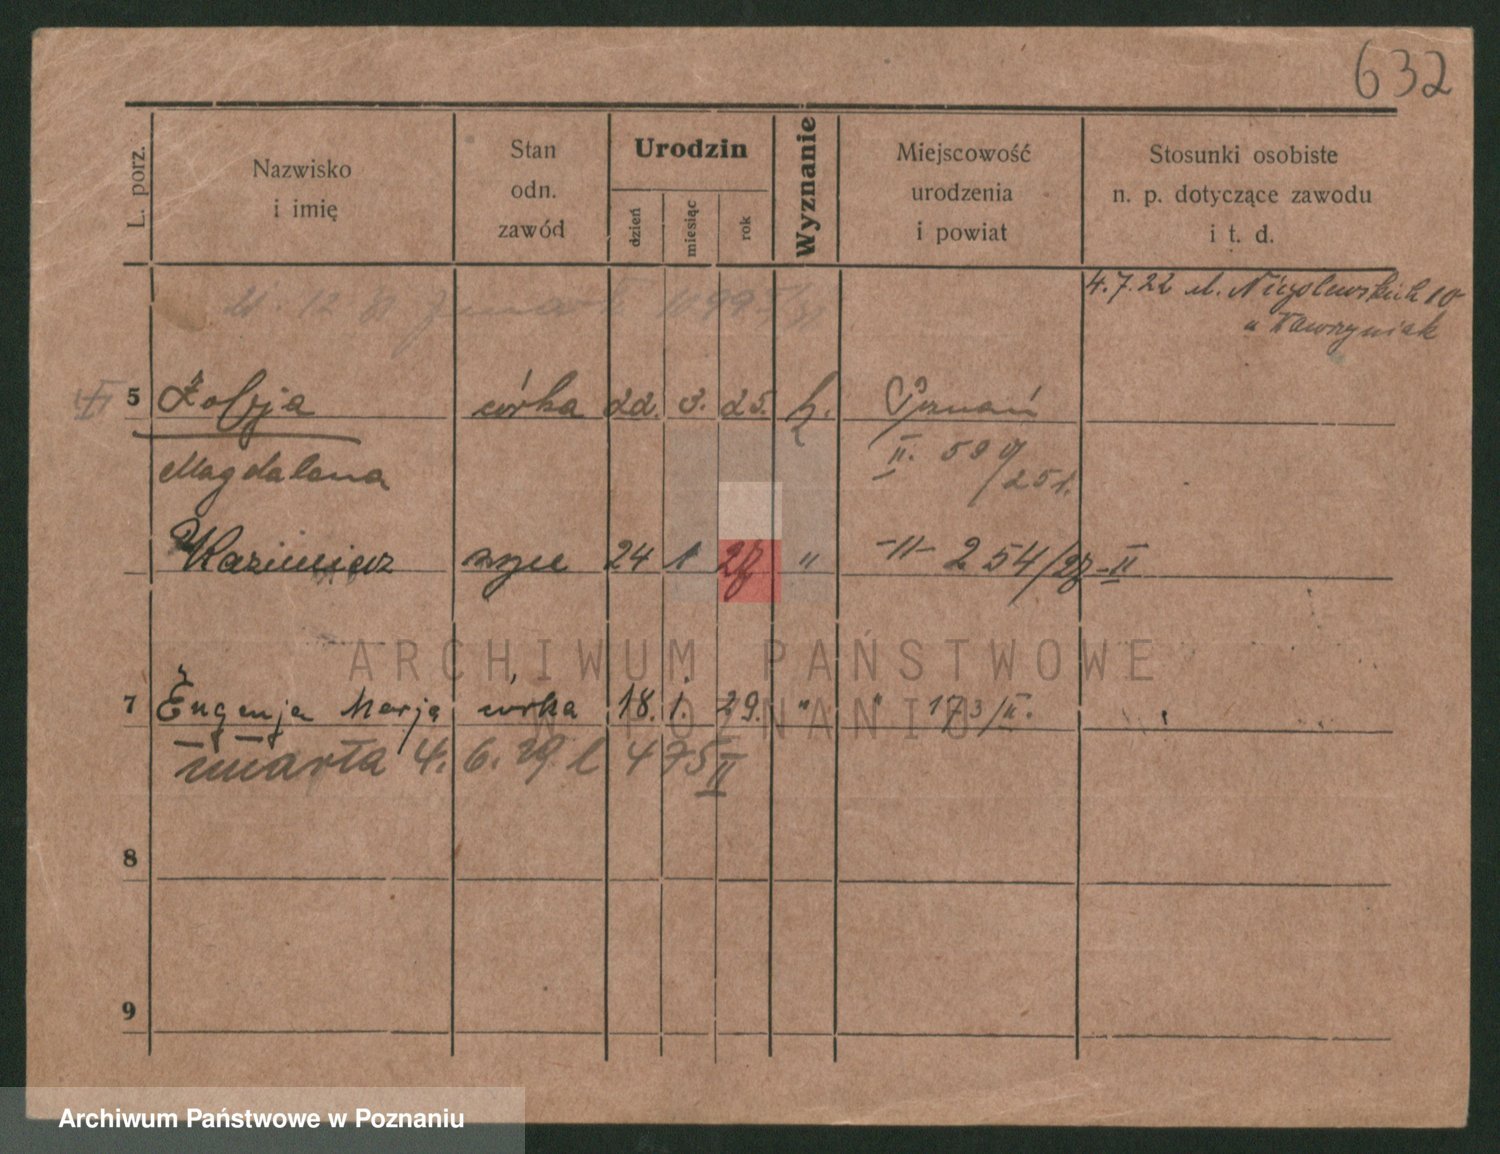 632
L. porz.
Nazwisko
i imię
Stan
odn.
zawód
Urodzin
dzień
miesiąc
rok
Wyznanie
Miejscowość
urodzenia
i powiat
Stosunki osobiste
n. p. dotyczące zawodu
i t. d.
4.7.22 ul. Niegolewskich 10
u Wawrzyniak
5 Zofja córka 22. 3. 25. k. Poznań
Magdalena II. 599/251.
Kazimierz syn 24 1 27 " -II- 254/27-II
7 Eugenja Marja córka 18. 1. 29. " " 173/II.
umarła 4. 6. 29 l 475 II
8
9
ARCHIWUM PAŃSTWOWE
W POZNANIU
Archiwum Państwowe w Poznaniu